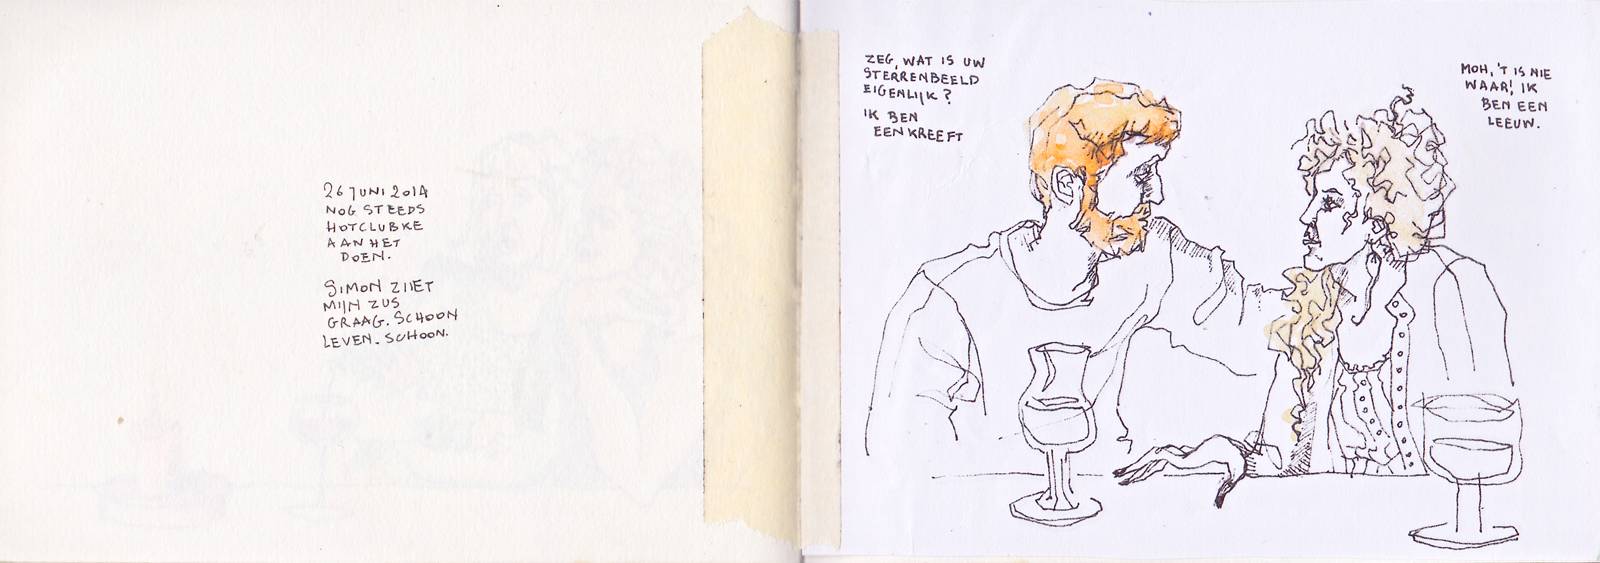 26 JUNI 2014
NOG STEEDS
HOTCLUBKE
AAN HET
DOEN.
SIMON ZIET
MIJN ZUS
GRAAG. SCHOON
LEVEN. SCHOON.
ZEG, WAT IS UW
STERRENBEELD
EIGENLIJK?
IK BEN
EEN KREEFT
MOH, 'T IS NIE
WAAR! IK
BEN EEN
LEEUW.